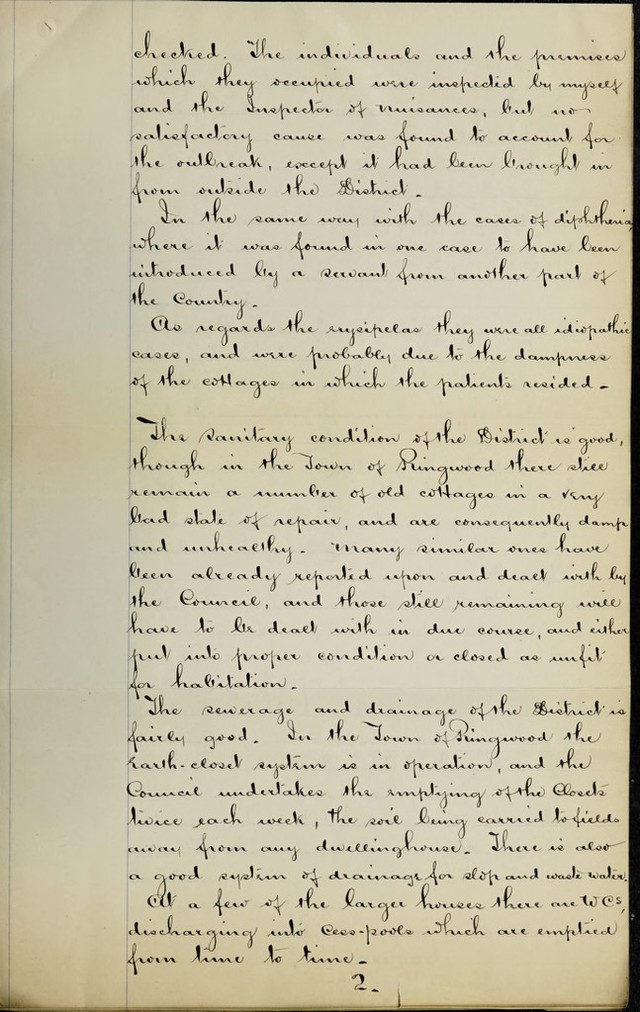 checked. The individuals and the premises
which they occupied were inspected by myself
and the Inspector of Nuisances, but no
satisfactory cause was found to account for
the outbreak, except it had been brought in
from outside the District.
In the same way with the cases of diphtheria,
where it was found in one case to have been
introduced by a servant from another part of
the Country.
As regards the erysipelas they were all idiopathic
cases, and were probably due to the dampness
of the cottages in which the patients resided.
The sanitary condition of the District is good,
though in the Town of Ringwood there still
remain a number of old cottages in a very
bad state of repair, and are consequently damp
and unhealthy. Many similar ones have
been already reported upon and dealt with by
the Council, and those still remaining will
have to be dealt with in due course, and either
put into proper condition or closed as unfit
for habitation.
The sewerage and drainage of the District is
fairly good. In the Town of Ringwood the
Earth-closet system is in operation, and the
Council undertakes the emptying of the Closets
twice each week, the soil being carried to fields
away from any dwellinghouse. There is also
a good system of drainage for slop and waste water.
At a few of the larger houses there are W Cs,
discharging into Cess-pools which are emptied
from time to time.
2.